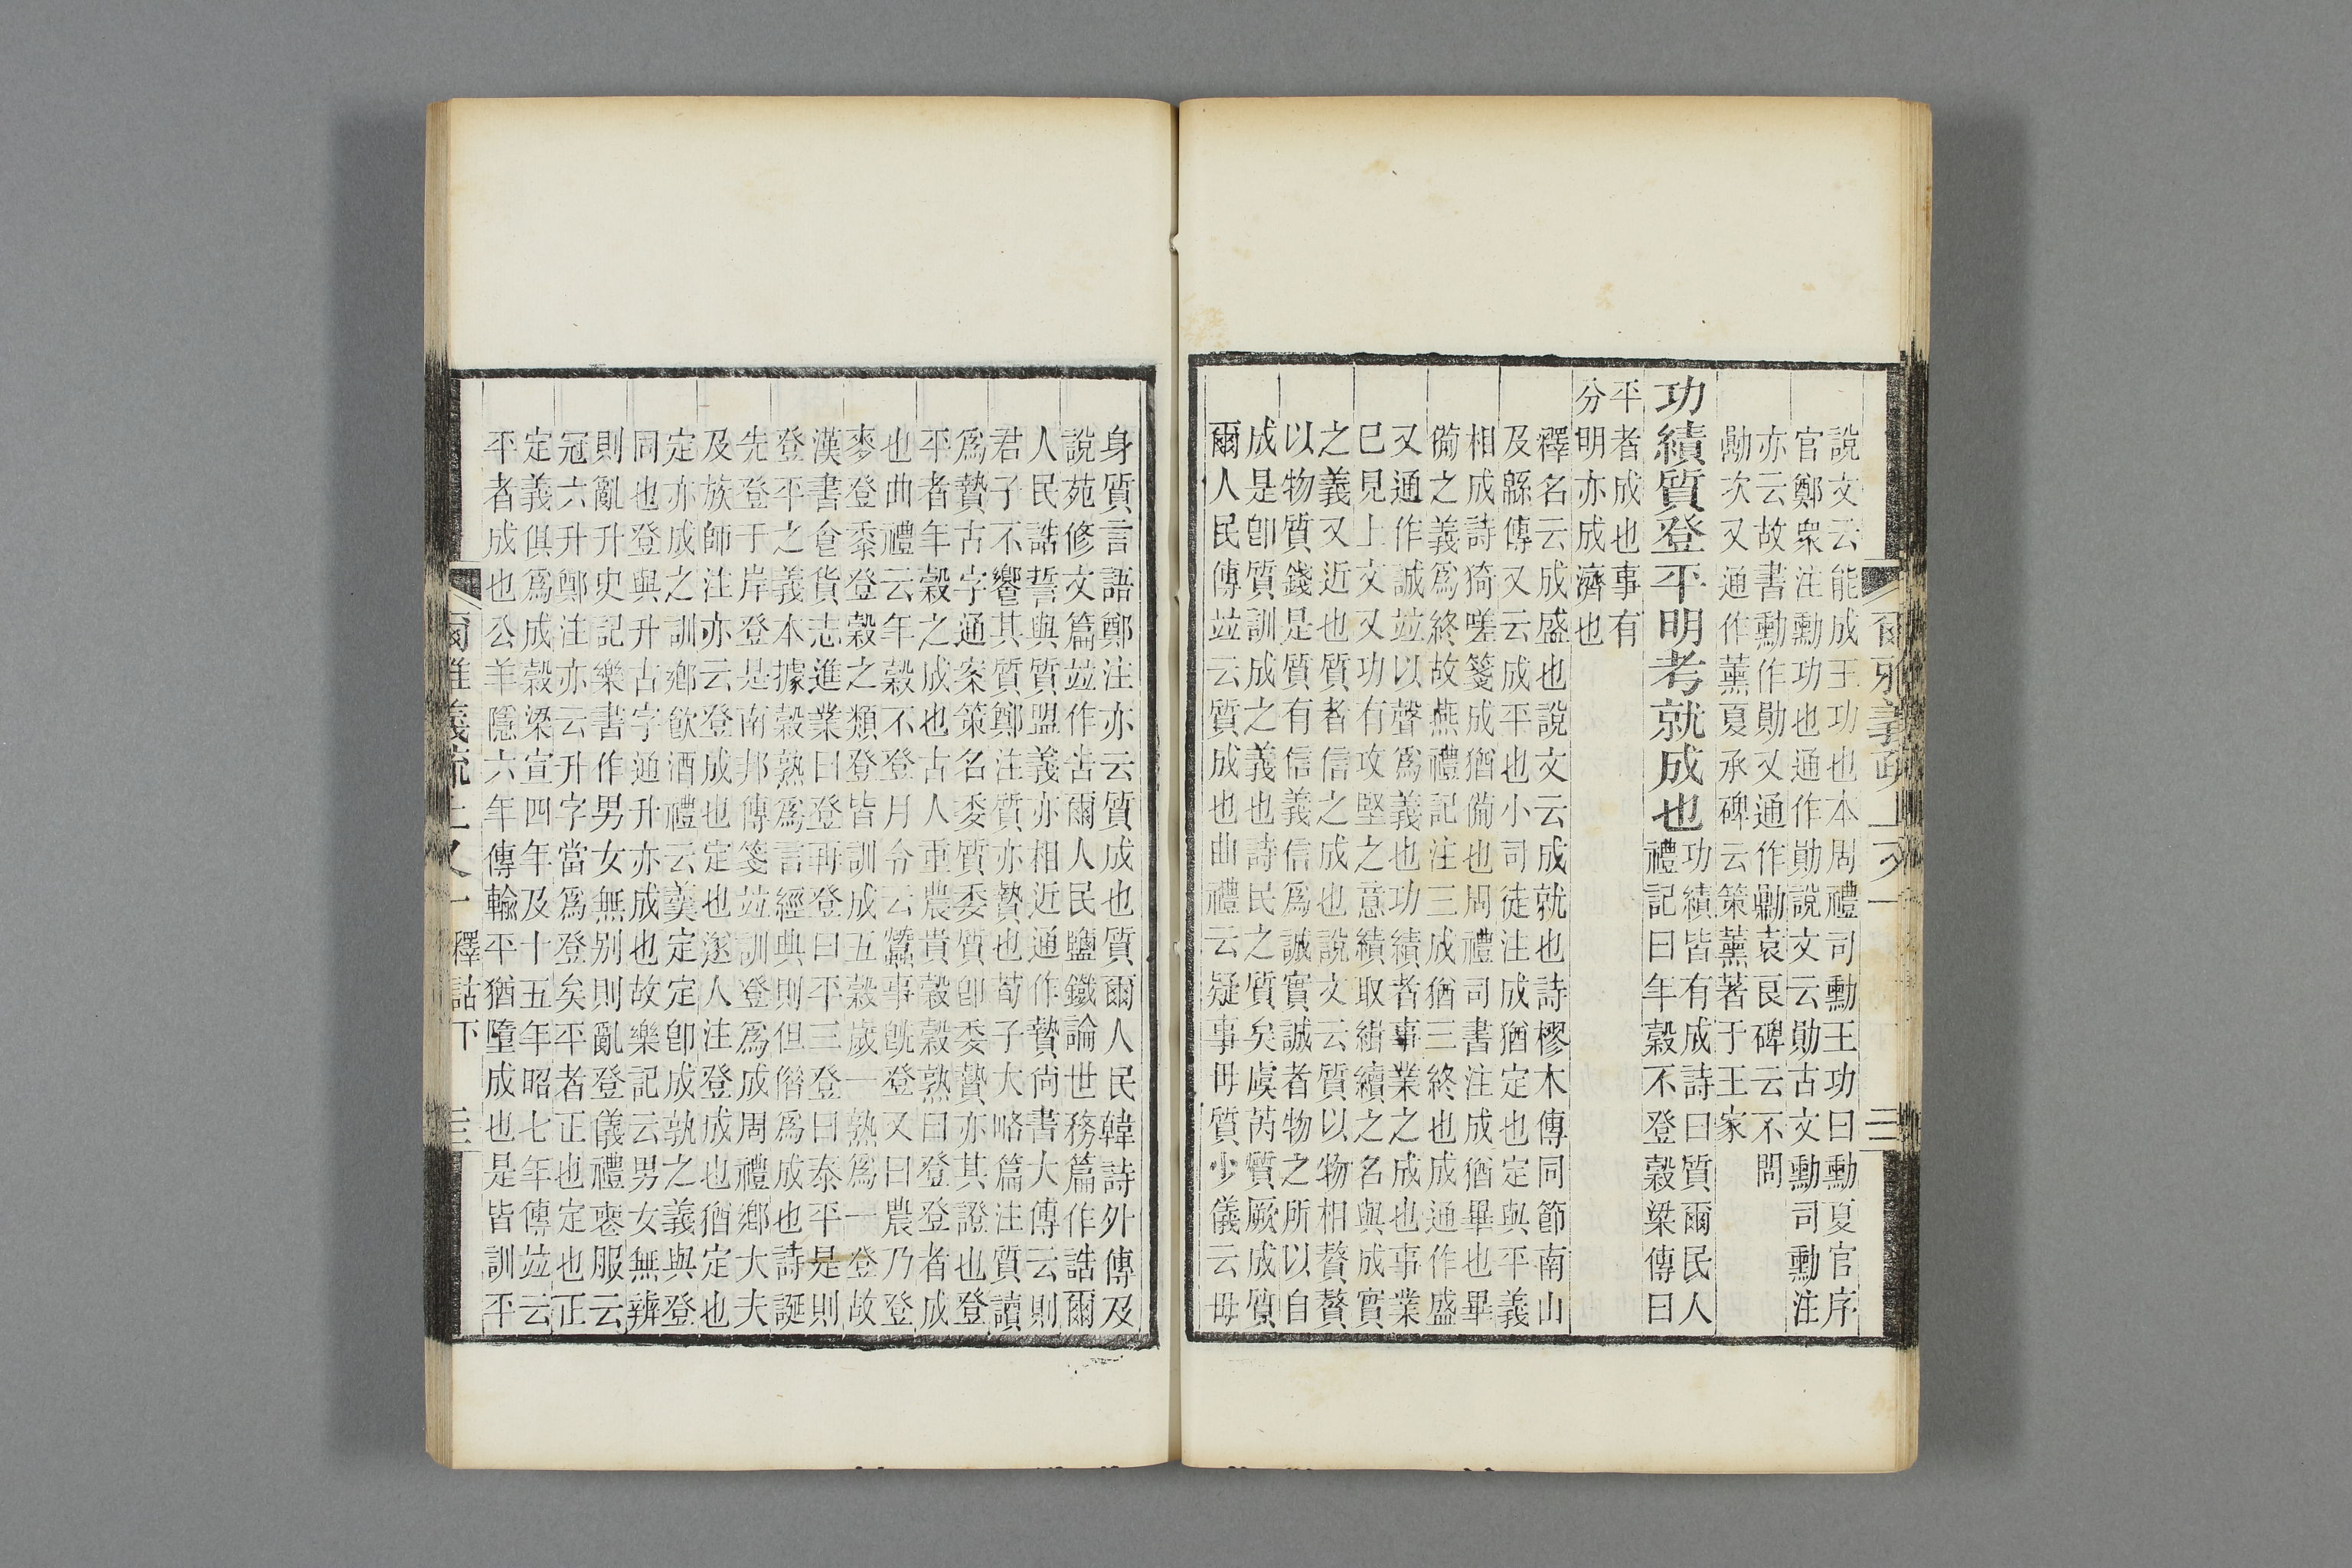 爾雅義疏上又一 三
說文云能成王功也本周禮司勳王功曰勳夏官序
官鄭衆注勳功也通作勛說文云勛古文勳司勳注
亦云故書勳作勛又通作勷袁良碑云不問
勷次又通作薰夏承碑云策薰著于王家
功績質登平明考就成也
功績皆有成詩曰質爾民人
禮記曰年穀不登穀梁傳曰
平者成也事有
分明亦成濟也
釋名云成盛也說文云成就也詩樛木傳同節南山
及緜傳又云成平也小司徒注成猶定也定與平義
相成詩猗嗟箋成猶備也周禮司書注成猶畢也畢
備之義爲終故燕禮記注三成猶三終也成通作盛
又通作誠竝以聲爲義也功績者事業之成也事業
已見上文又功有攻堅之意績取緝續之名與成實
之義又近也質者信之成也說文云質以物相贅贅
以物質錢是質有信義信爲誠實誠者物之所以自
成是卽質訓成之義也詩民之質矣虞芮質厥成質
爾人民傳竝云質成也曲禮云疑事毋質少儀云毋
身質言語鄭注亦云質成也質爾人民韓詩外傳及
說苑修文篇竝作古爾人民鹽鐵論世務篇作誥爾
人民誥誓與質盟義亦相近通作贄尚書大傳云則
君子不饗其質鄭注質亦贄也荀子大略篇注質讀
爲贄古字通案策名委質委質卽委贄亦其證也登
平者年穀之成也古人重農貴穀穀熟曰登登者成
也曲禮云年穀不登月令云蠶事旣登又曰農乃登
麥登黍登穀之類登皆訓成五穀歲一熟爲一登故
漢書食貨志進業曰登再登曰平三登曰泰平是則
登平之義本據穀熟爲言經典則但偕爲成也詩誕
先登于岸登是南邦傳箋竝訓登爲成周禮鄉大夫
及族師注亦云登成也定也遂人注登成也猶定也
定亦成之訓鄉飲酒禮云羹定定卽成孰之義與登
同也登與升古字通升亦成也故樂記云男女無辨
則亂升史記樂書作男女無別則亂登儀禮喪服云
冠六升鄭注亦云升字當爲登矣平者正也定也正
定義俱爲成穀梁宣四年及十五年昭七年傳竝云
平者成也公羊隱六年傳輸平猶墮成也是皆訓平
爾雅義疏上又一 釋詁下 三